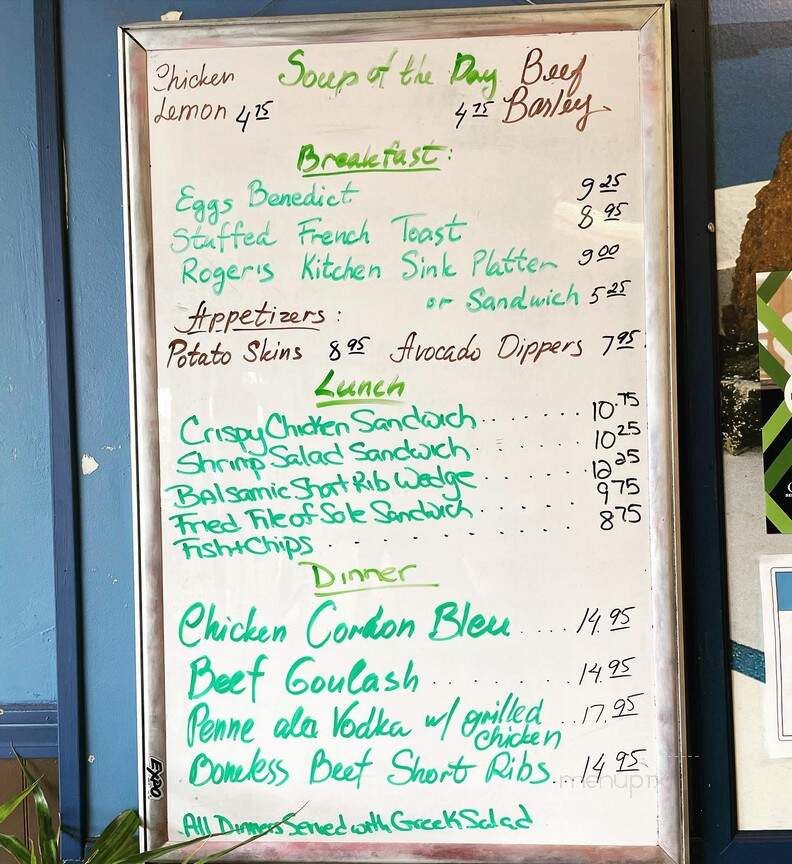 Chicken Soup of the Day Beef
Lemon 4.75 4.75 Barley
Breakfast:
Eggs Benedict 9.25
Stuffed French Toast 8.95
Roger's Kitchen Sink Platter 9.00
or Sandwich 5.25
Appetizers:
Potato Skins 8.95 Avocado Dippers 7.95
Lunch
Crispy Chicken Sandwich ....... 10.75
Shrimp Salad Sandwich ....... 10.25
Balsamic Short Rib Wedge ....... 12.25
Fried File of Sole Sandwich ....... 9.75
Fish + Chips ....... 8.75
Dinner
Chicken Cordon Bleu .... 14.95
Beef Goulash ........ 14.95
Penne ala Vodka w/ grilled .. 17.95
chicken
Boneless Beef Short Ribs .. 14.95
All Dinners Served with Greek Salad
EXPO
menupix